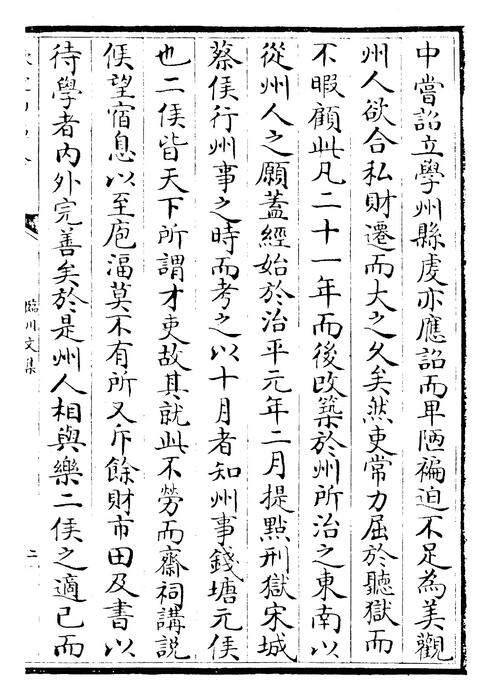 中嘗詔立學州縣虔亦應詔而卑陋褊迫不足為美觀
州人欲合私財遷而大之久矣然吏常力屈於聽獄而
不暇顧此凡二十一年而後改築於州所治之東南以
從州人之願蓋經始於治平元年二月提點刑獄宋城
蔡侯行州事之時而考之以十月者知州事錢塘元侯
也二侯皆天下所謂才吏故其就此不勞而齋祠講説
侯望宿息以至庖湢莫不有所又斥餘財市田及書以
待學者内外完善矣於是州人相與樂二侯之適已而
臨川文集
二